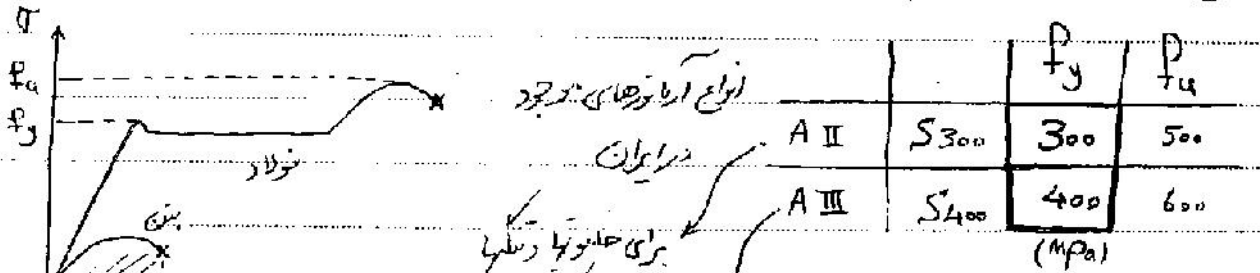 σ
fu
fy
فولاد
بتن
انواع آرماتورهای موجود
در ایران
برای خاموتها و تنگها
fy fu
A II S300 300 500
A III S400 400 600
(MPa)